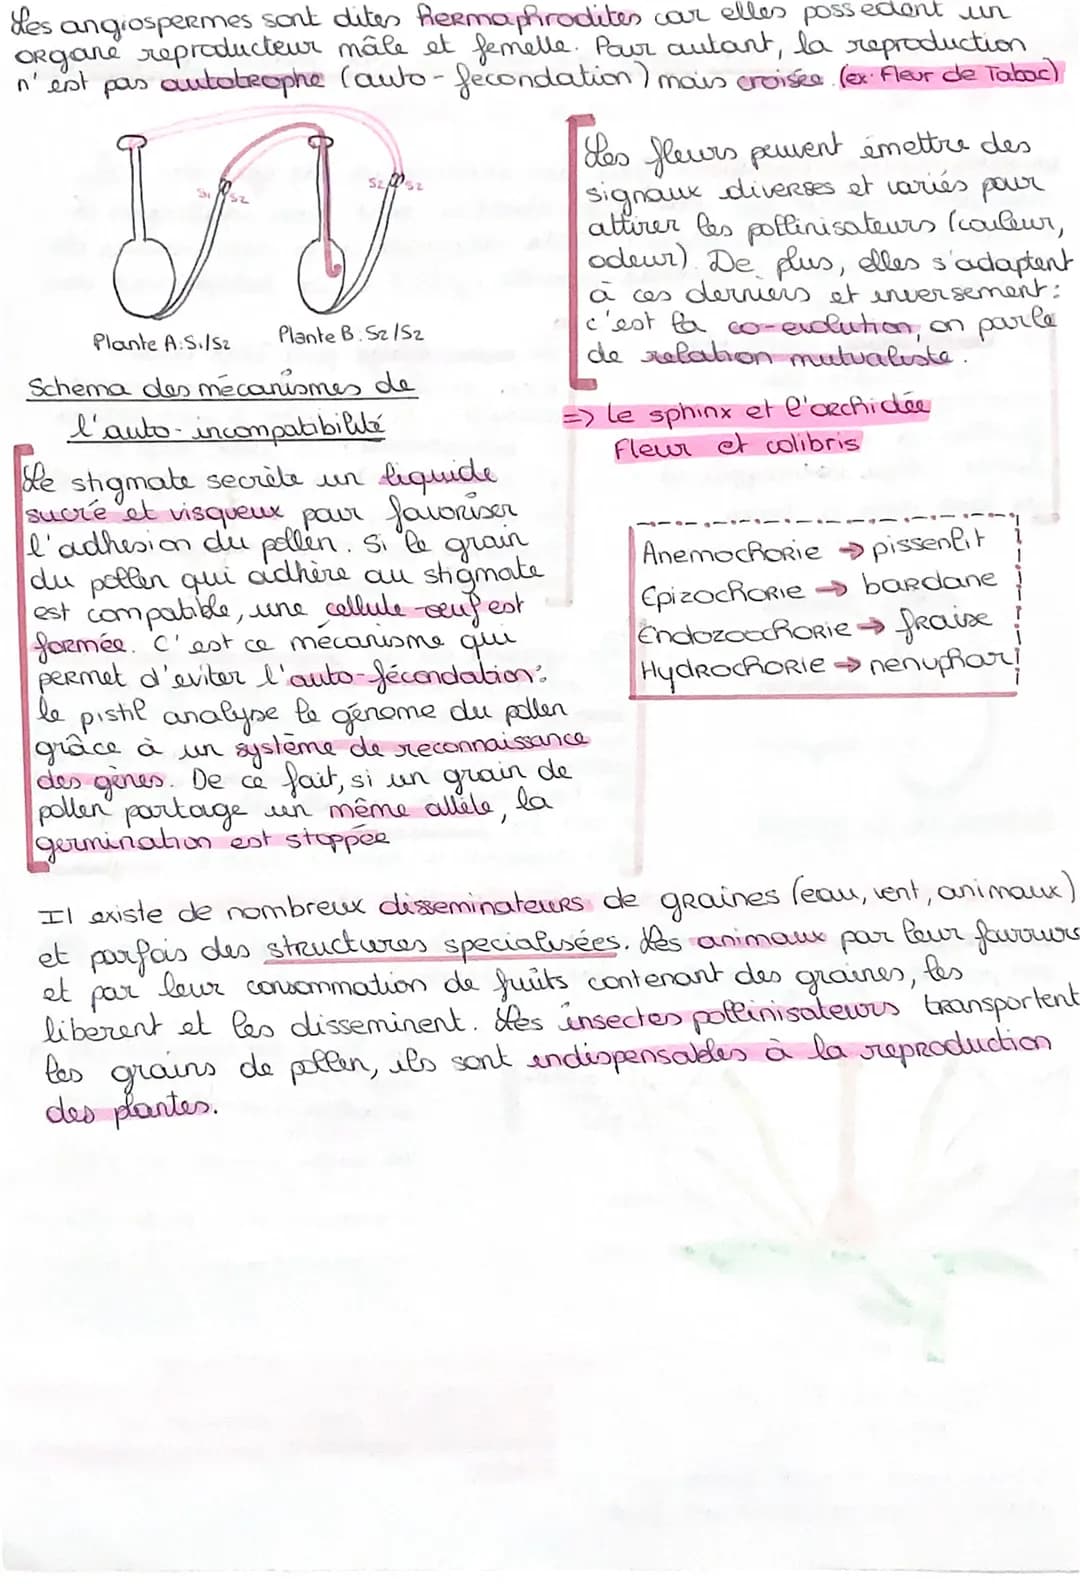 Les angiospermes sont dites hermaphrodites car elles possèdent un
organe reproducteur mâle et femelle. Pour autant, la reproduction
n'est pas autotrophe (auto-fecondation) mais croisée. (ex: Fleur de Tabac)
S1 S2
S2 S2
Plante A: S1/S2
Plante B: S2/S2
Schema des mécanismes de
l'auto-incompatibilité
Le stigmate secrète un liquide
sucré et visqueux pour favoriser
l'adhesion du pollen. Si le grain
du pollen qui adhère au stigmate
est compatible, une cellule-oeuf est
formée. C'est ce mécanisme qui
permet d'eviter l'auto-fécondation:
le pistil analyse le génome du pollen
grâce à un système de reconnaissance
des gènes. De ce fait, si un grain de
pollen partage un même allèle, la
germination est stoppée
Les fleurs peuvent émettre des
signaux diverses et variés pour
attirer les pollinisateurs (couleur,
odeur). De plus, elles s'adaptent
à ces derniers et inversement:
c'est la co-evolution, on parle
de relation mutualiste.
=> le sphinx et l'orchidée
Fleur et colibris
Anemochorie → pissenlit
Epizochorie → bardane
Endozoochorie → fraise
Hydrochorie → nenuphar
Il existe de nombreux disseminateurs de graines (eau, vent, animaux)
et parfois des structures specialisées. Les animaux par leur fourrure
et par leur consommation de fruits contenant des graines, les
liberent et les disseminent. Les insectes pollinisateurs transportent
les grains de pollen, ils sont indispensables à la reproduction
des plantes.